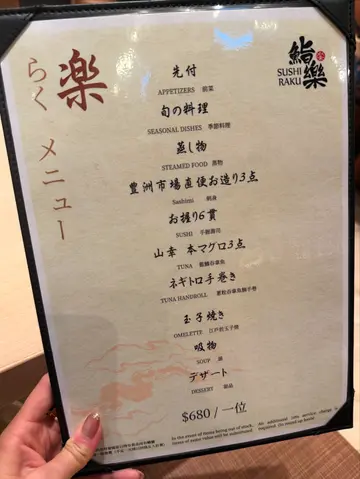 楽
らく メニュー
鮨樂
SUSHI
RAKU
先付
APPETIZERS 前菜
旬の料理
SEASONAL DISHES 季節料理
蒸し物
STEAMED FOOD 蒸物
豊洲市場直便お造り3点
Sashimi 刺身
お握り6貫
SUSHI 手握壽司
山幸 本マグロ3点
TUNA 藍鰭吞拿魚
ネギトロ手巻き
TUNA HANDROLL 蔥粒吞拿魚腩手卷
玉子焼き
OMELETTE 江戶前玉子燒
吸物
SOUP 湯
デザート
DESSERT 甜品
$680 / 一位
In the event of items being out of stock,
items of equal value will be substituted.
An additional 10% service charge is
required. (No round up here)